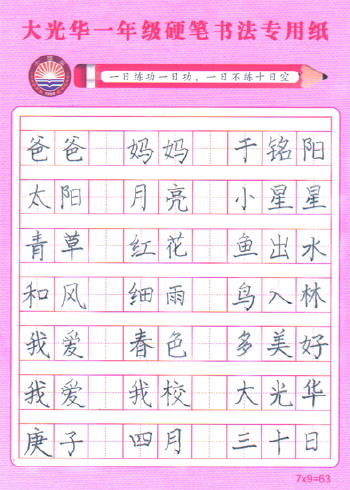 大光华一年级硬笔书法专用纸
一日练功一日功，一日不练十日空
爸爸 妈妈 于铭阳
太阳 月亮 小星星
青草 红花 鱼出水
和风 细雨 鸟入林
我爱 春色 多美好
我爱 我校 大光华
庚子 四月 三十日
7x9=63